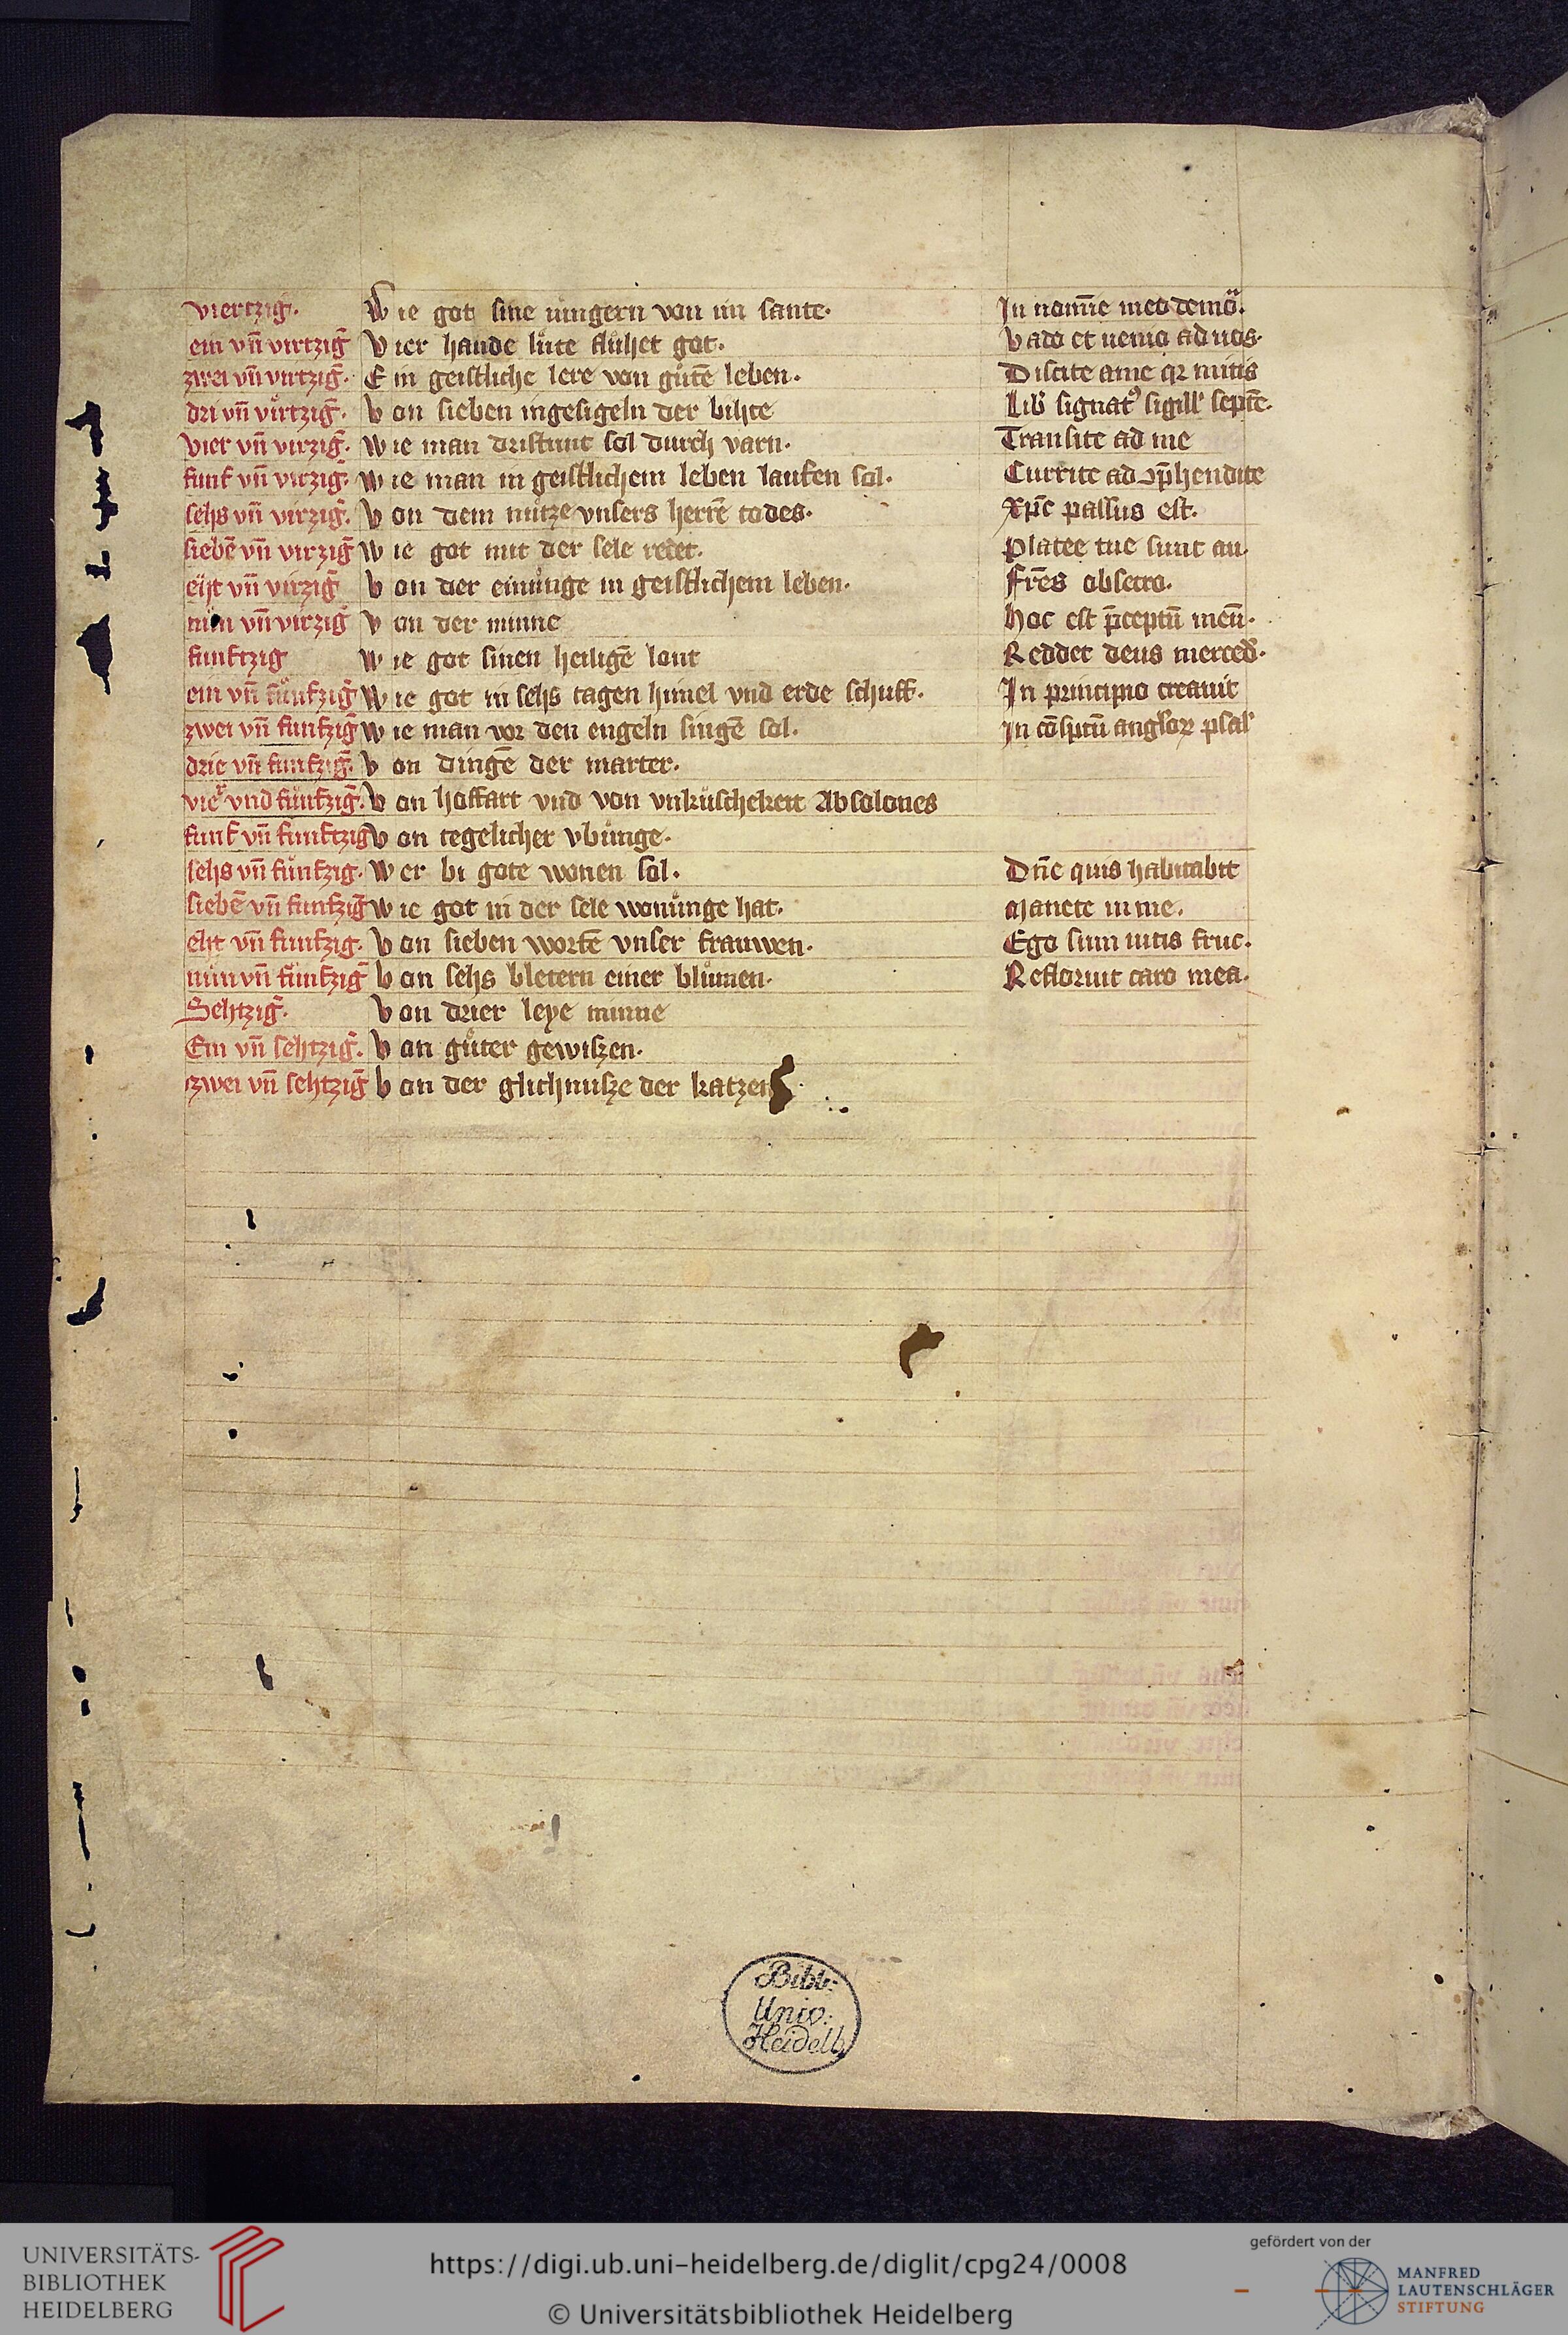 viertzig. Wie got sine iungern von im sante. In nomīe meo demō.
ein vn̄ virtziḡ Vier hande lu̍te fluhet got. Vado et uenio ad uos.
zwei vn̄ virtziḡ. Ein geistliche lere von gůtē leben. Discite a me qꝛ mitis
dri vn̄ virtziḡ. Von sieben ingesigeln der bihte Lib̓ signat⁹ sigill' septē.
Vier vn̄ virziḡ. Wie man dristunt sol durch varn. Transite ad me
funf vn̄ virziḡ. Wie man in geistlichem leben laufen sol. Currite ad ꝯp̄hendite
sehs vn̄ virziḡ. Von dem nutze vnsers herrē todes. Xp̄c passus est.
siebē vn̄ virziḡ Wie got mit der sele redet. Platee tue sunt au.
eht vn̄ virziḡ Von der einunge in geistlichem leben. Fr̄es obsecro.
nun vn̄ virzig Von der minne Hoc est p̄ceptū meū.
funftzig Wie got sinen heiligē lont Reddet deus merced̓.
ein vn̄ fůnfziḡ Wie got in sehs tagen himel vnd erde schuff. In principio creauit
zwei vn̄ funfziḡ Wie man vor den engeln singē sol. In cōspctū anglorꝝ psal'
drie vn̄ funfziḡ. Von dingē der marter.
vier vnd fůnfziḡ. Von hoffart vnd von vnkuscheheit Absolones
funf vn̄ funftzig Von tegelicher vbunge.
sehs vn̄ funfzig. Wer bi gote wonen sol. Dn̄e quis habitabit
siebē vn̄ funfziḡ Wie got in der sele wonunge hat. Manete in me.
eht vn̄ funfzig. Von sieben wortē vnser frauwen. Ego sum uitis fruc.
nun vn̄ fůnfziḡ Von sehs bletern einer blůmen. Refloruit caro mea.
Sehtziḡ. Von drier leye minne
Ein vn̄ sehtziḡ. Von gůter gewiszen.
zwei vn̄ sehtziḡ Von der glichnusze der katzen
Bibl:
Univ:
Heidelb.
UNIVERSITÄTS-
BIBLIOTHEK
HEIDELBERG
https://digi.ub.uni-heidelberg.de/diglit/cpg24/0008
© Universitätsbibliothek Heidelberg
gefördert von der
MANFRED
LAUTENSCHLÄGER
STIFTUNG